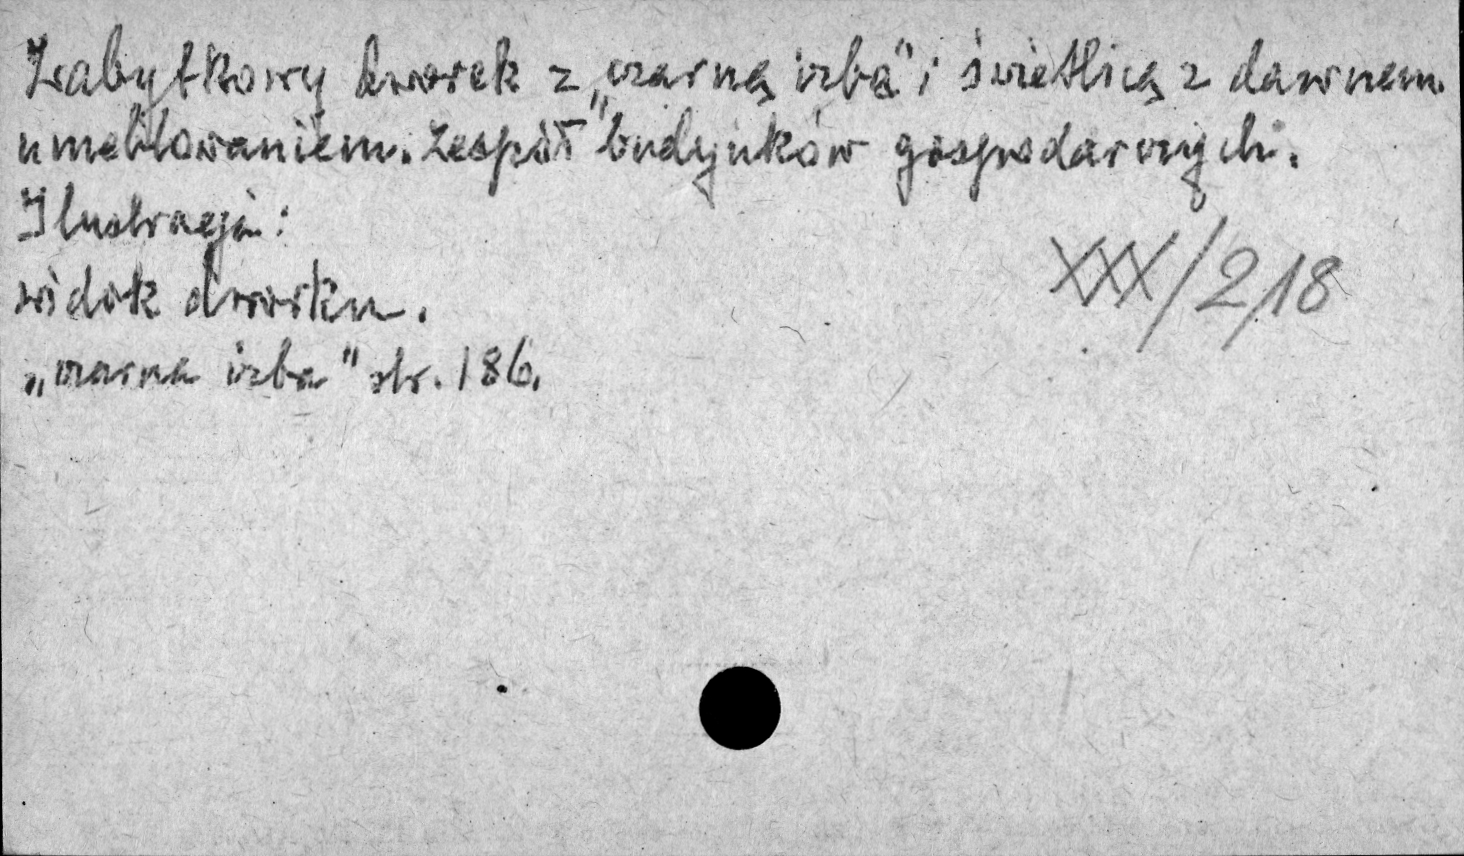 Zabytkowy dworek z „czarną izbą" i świetlicą z dawnem
umeblowaniem. Zespół budynków gospodarczych.
Ilustracja:
widok dworku.
„czarna izba" str. 186.
XXX/218